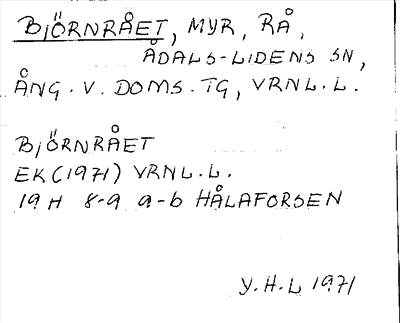 BJÖRNRÅET, MYR, RÅ,
ÅDALS-LIDENS SN,
ÅNG. V. DOMS. TG, VRNL. L.
BJÖRNRÅET
EK (1971) VRNL. L.
19 H 8-9 a-b HÅLAFORSEN
Y. H. L 1971